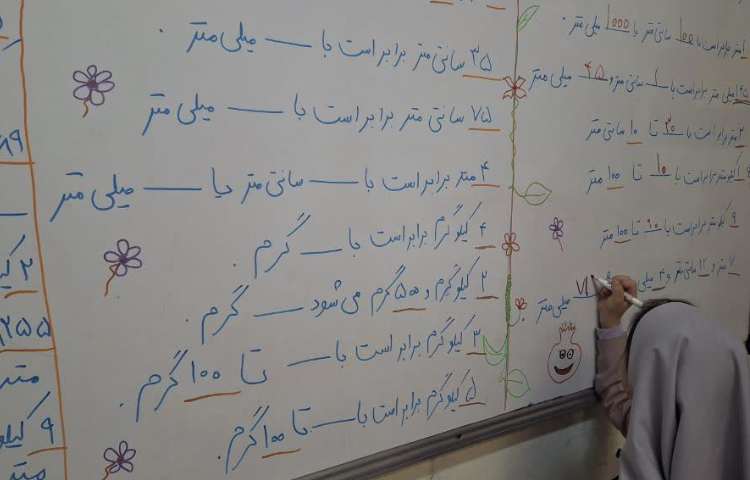 ۱ متر برابر است با ۱۰۰ سانتی متر یا ۱۰۰۰ میلی متر .
میلی متر برابر است با سانتی متر و ۴۵ میلی متر
۳ متر برابر است با ۳۰ تا ۱۰ سانتی متر
۱ کیلومتر برابر است با ۱۰ تا ۱۰۰ متر
۹ کیلومتر برابر است با ۹۰ تا ۱۰۰ متر
۷ متر و ۱۲ سانتی متر و ۴ میلی
۷۱ میلی متر
۳۵ سانتی متر برابر است با ـــ میلی متر .
۷۵ سانتی متر برابر است با ـــ میلی متر
۴ متر برابر است با ـــ سانتی متر یا ـــ میلی متر
۴ کیلوگرم برابر است با ـــ گرم .
۲ کیلوگرم و ۵۰۰ گرم می شود ـــ گرم .
۳ کیلوگرم برابر است با ـــ تا ۱۰۰ گرم .
۵ کیلوگرم برابر است با ـــ تا ۱۰۰ گرم .
۸۹
۲ کی
۲۵۵
متر
۹ کیلو
متر